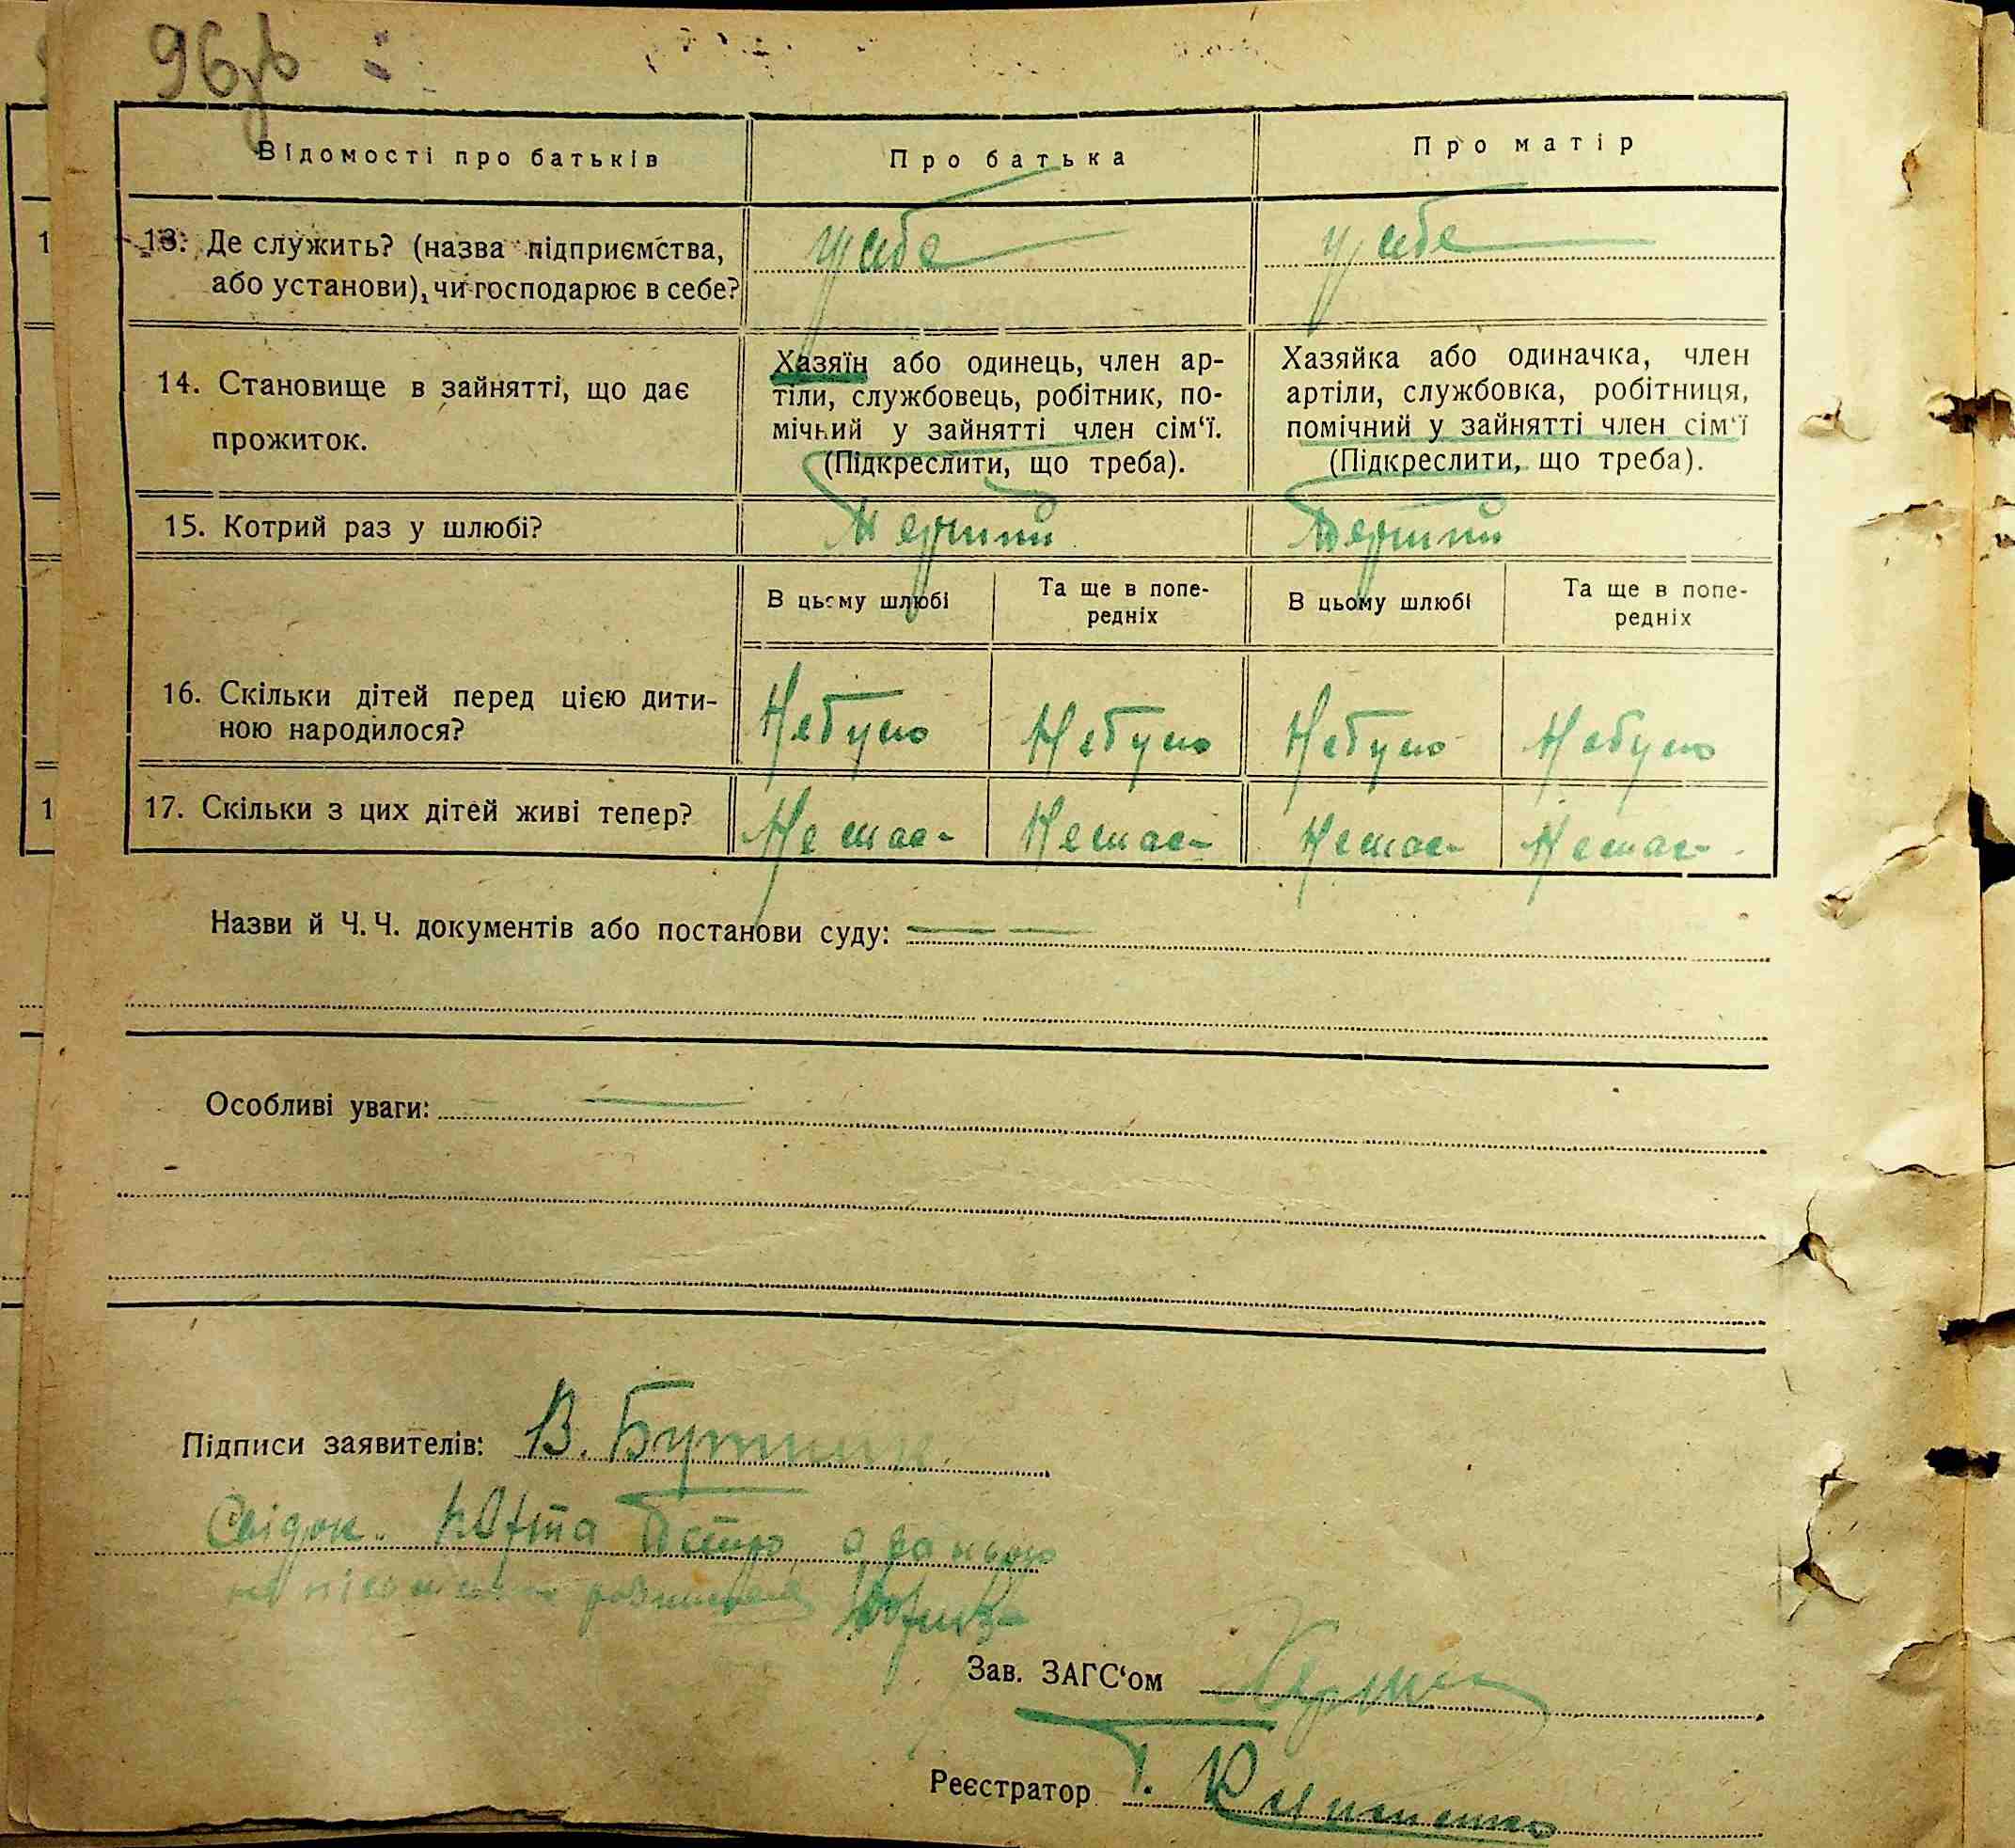 96зв
Відомості про батьків
Про батька
Про матір
13. Де служить? (назва підприємства,
або установи), чи господарює в себе?
у себе
у себе
14. Становище в зайнятті, що дає
прожиток.
Хазяїн або одинець, член ар-
тіли, службовець, робітник, по-
мічний у зайнятті член сім‘ї.
(Підкреслити, що треба).
Хазяйка або одиначка, член
артіли, службовка, робітниця,
помічний у зайнятті член сім‘ї
(Підкреслити, що треба).
15. Котрий раз у шлюбі?
Перший
Перший
В цьому шлюбі
Та ще в попе-
редніх
В цьому шлюбі
Та ще в попе-
редніх
16. Скільки дітей перед цією дити-
ною народилося?
Небуло
Небуло
Небуло
Небуло
17. Скільки з цих дітей живі тепер?
Немає
Немає
Немає
Немає
Назви й Ч. Ч. документів або постанови суду:
Особливі уваги:
Підписи заявителів: В.
Свідок Петро, а за нього
розписався
Зав. ЗАГС‘ом
Реєстратор Т.